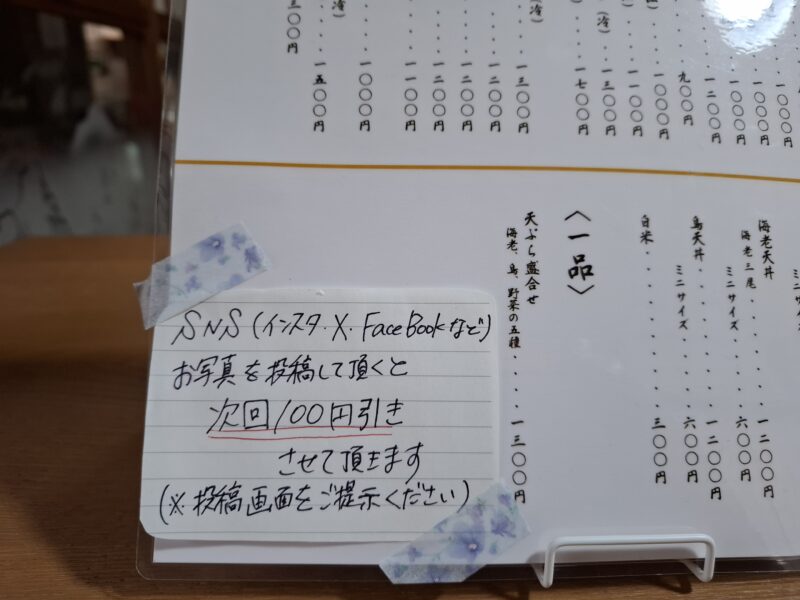 一〇〇〇円
一〇〇〇円
一〇〇〇円
一二〇〇円
九〇〇円
一〇〇〇円
一一〇〇円
(冷)・・一三〇〇円
一七〇〇円
一三〇〇円
一二〇〇円
一二〇〇円
一二〇〇円
一一〇〇円
一〇〇〇円
一五〇〇円
三〇〇円
海老天丼・・・・・一二〇〇円
海老三尾
ミニサイズ・・・六〇〇円
鳥天丼・・・・・一二〇〇円
ミニサイズ・・・六〇〇円
白米・・・・・・・三〇〇円
〈一品〉
天ぷら盛合せ
海老、鳥、野菜の五種・・・一三〇〇円
SNS(インスタ.X.FaceBookなど)
お写真を投稿して頂くと
次回100円引き
させて頂きます
(※投稿画面をご提示ください)